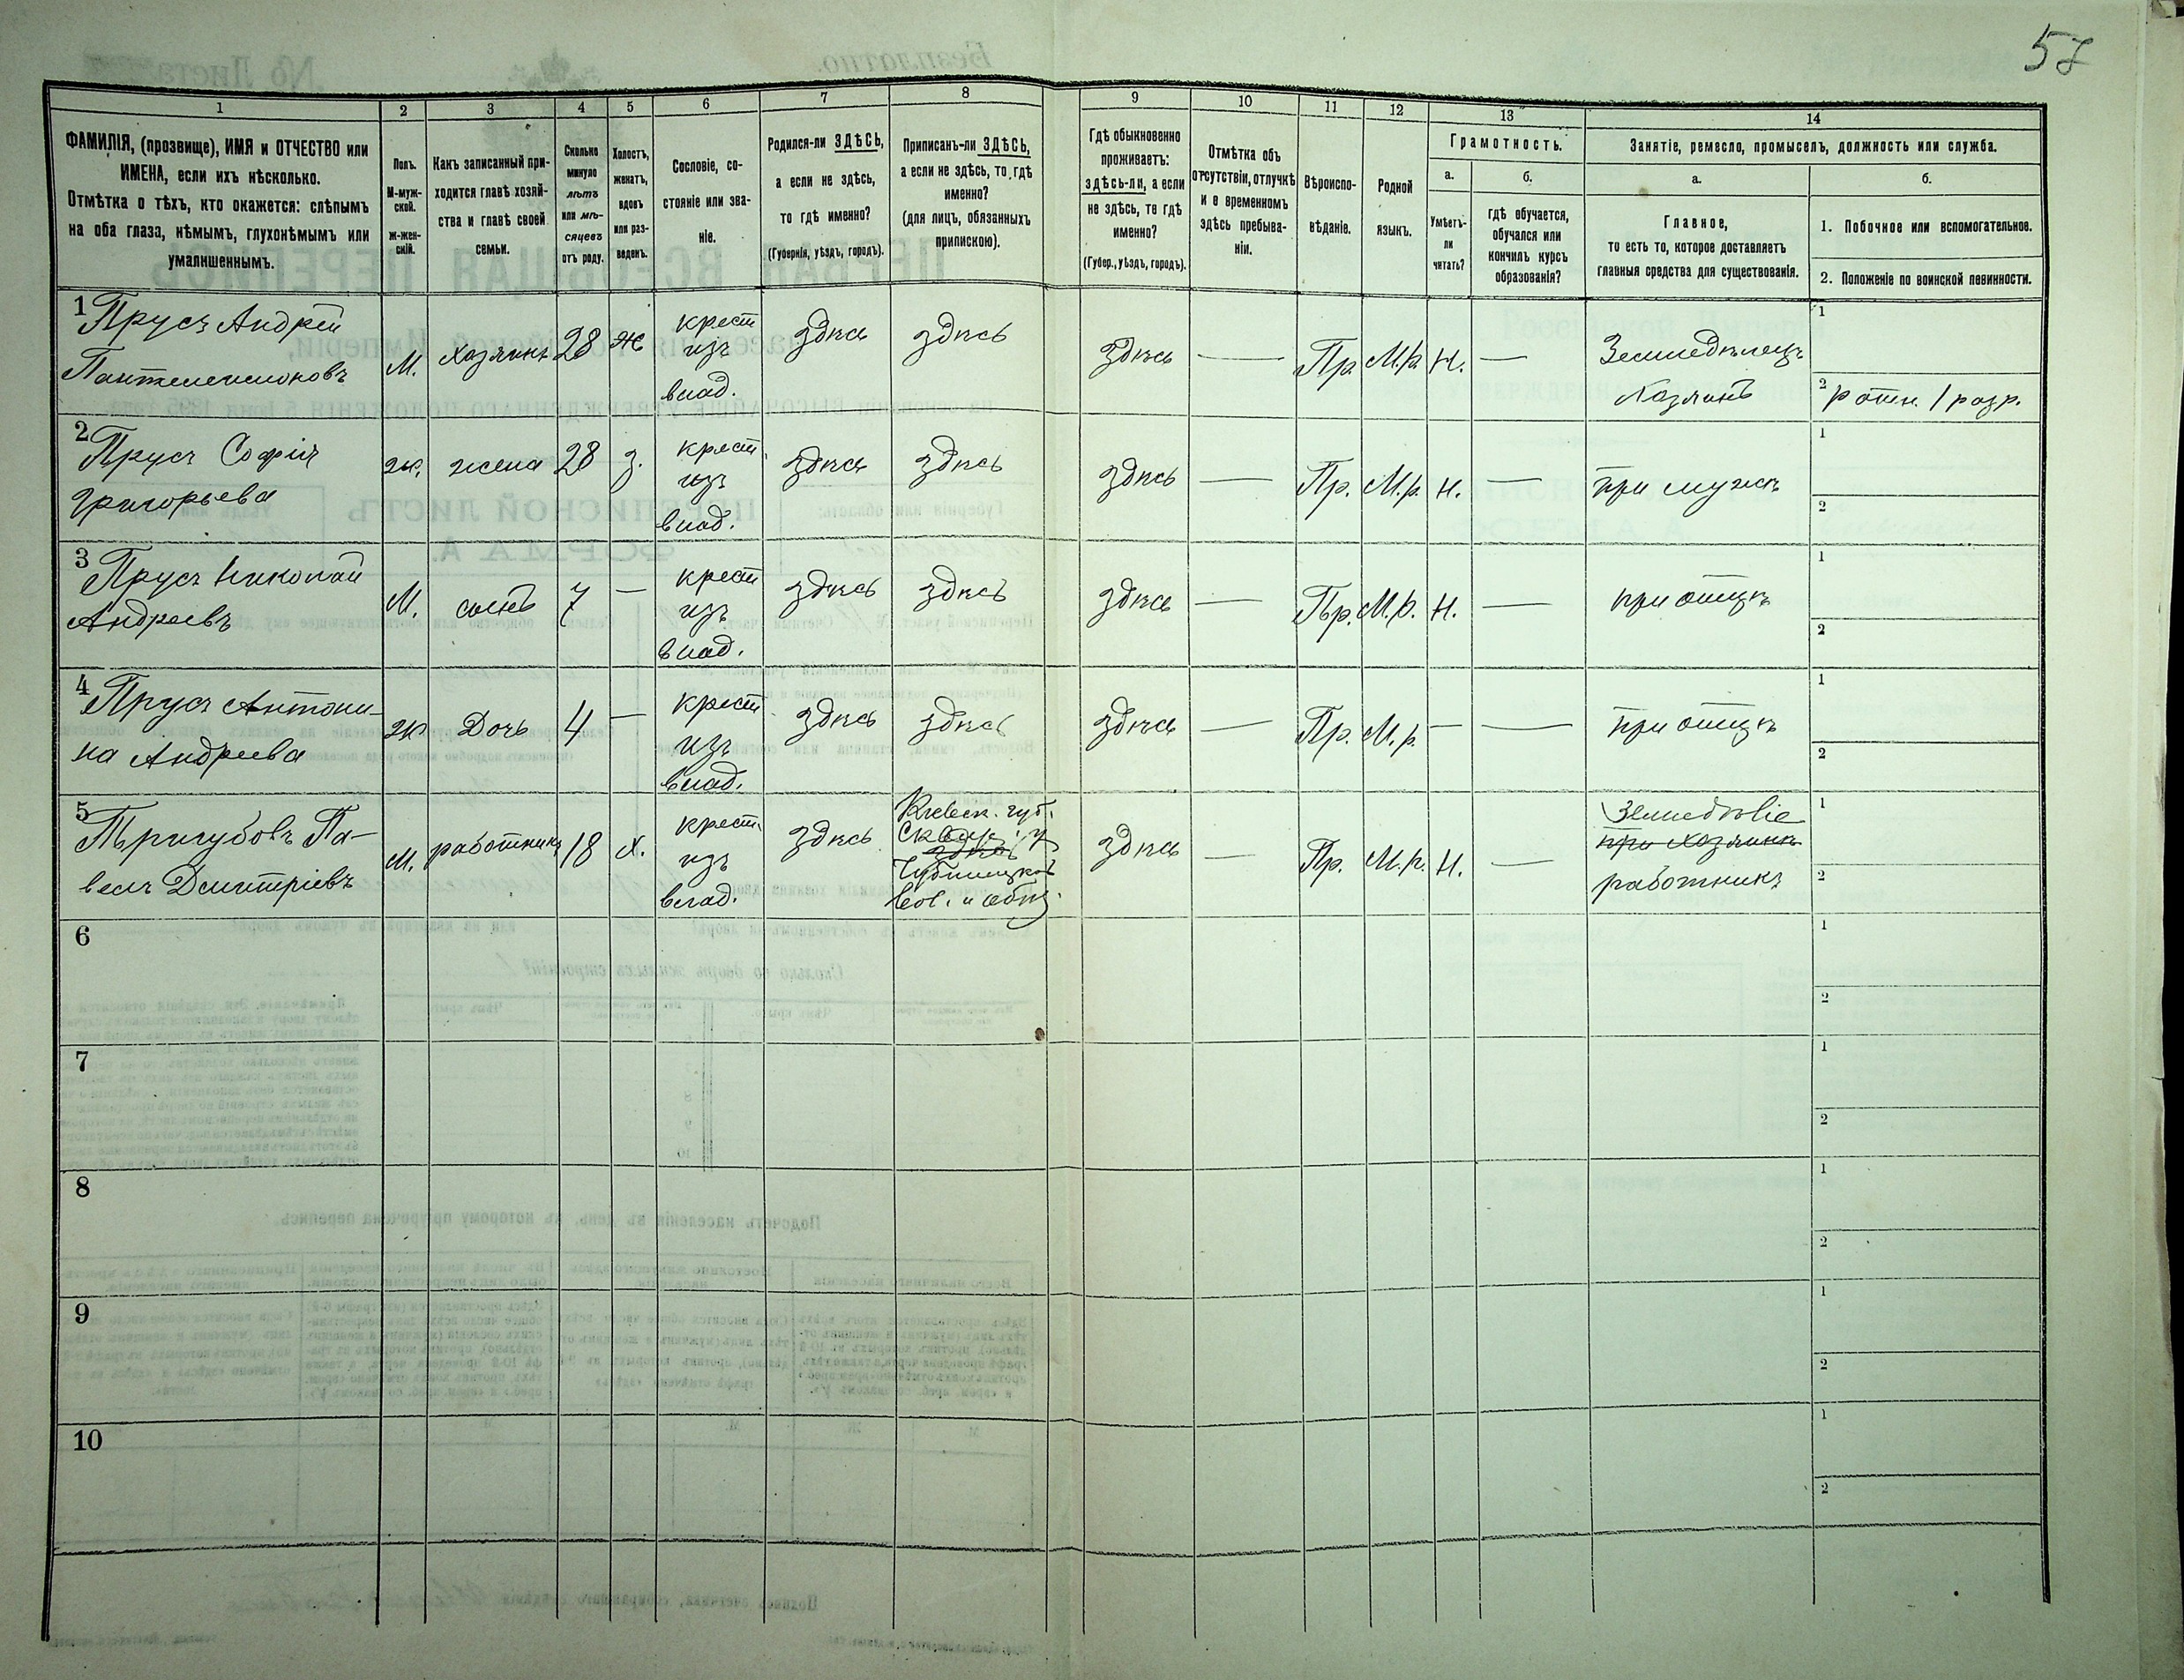 57
1 2 3 4 5 6 7 8 9 10 11 12 13 14
ФАМИЛІЯ, (прозвище), ИМЯ и ОТЧЕСТВО или
ИМЕНА, если ихъ нѣсколько.
Отмѣтка о тѣхъ, кто окажется: слѣпымъ
на оба глаза, нѣмымъ, глухонѣмымъ или
умалишеннымъ.
Полъ.
М-муж-
ской.
Ж-жен-
скій.
Какъ записанный при-
ходится главѣ хозяй-
ства и главѣ своей
семьи.
Сколько
минуло
лѣтъ
или мѣ-
сяцевъ
отъ роду.
Холостъ,
женатъ,
вдовъ
или раз-
веденъ.
Сословіе, со-
стояніе или зва-
ніе.
Родился-ли ЗДѢСЬ,
а если не здѣсь,
то гдѣ именно?
(Губернія, уѣздъ, городъ).
Приписанъ-ли ЗДѢСЬ,
а если не здѣсь, то гдѣ
именно?
(для лицъ, обязанныхъ
припискою).
Гдѣ обыкновенно
проживаетъ:
здѣсь-ли, а если
не здѣсь, то гдѣ
именно?
(Губер., уѣздъ, городъ).
Отмѣтка объ
отсутствіи, отлучкѣ
и о временномъ
здѣсь пребыва-
ніи.
Вѣроиспо-
вѣданіе.
Родной
языкъ.
Грамотность.
а.
Умѣетъ-
ли
читать?
б.
гдѣ обучается,
обучался или
кончилъ курсъ
образованія?
Занятіе, ремесло, промыселъ, должность или служба.
а.
Главное,
то есть то, которое доставляетъ
главныя средства для существованія.
б.
1. Побочное или вспомогательное.
2. Положеніе по воинской повинности.
1 Прусъ Андрей
Пантелеимоновъ
М.
хозяинъ
28
ж
крест
изъ
влад.
здѣсь
здѣсь
здѣсь
—
Пр.
М.р.
Н.
—
Земледѣлецъ
Хозяинъ
1
2 ратн. 1 разр.
2 Прусъ Софія
Григорьева
ж.
жена
28
з.
крест.
изъ
влад.
здѣсь
здѣсь
здѣсь
—
Пр.
М.р.
Н.
—
при мужѣ
1
2
3 Прусъ Николай
Андреевъ
М.
сынъ
7
—
крест
изъ
влад.
здѣсь
здѣсь
здѣсь
—
Пр.
М.р.
Н.
—
при отцѣ
1
2
4 Прусъ Антони-
на Андреева
ж
Дочь
4
—
крест
изъ
влад.
здѣсь
здѣсь
здѣсь
—
Пр.
М.р.
—
—
при отцѣ
1
2
5 Тригубовъ Па-
велъ Дмитріевъ
М.
работникъ
18
х.
крест.
изъ
влад.
здѣсь
Кіевск. губ.
Сквир. у
здѣсь
вол. и общ.
здѣсь
—
Пр.
М.р.
Н.
—
Земледѣліе
при хозяинѣ
работникъ
1
2
6
1
2
7
1
2
8
1
2
9
1
2
10
1
2